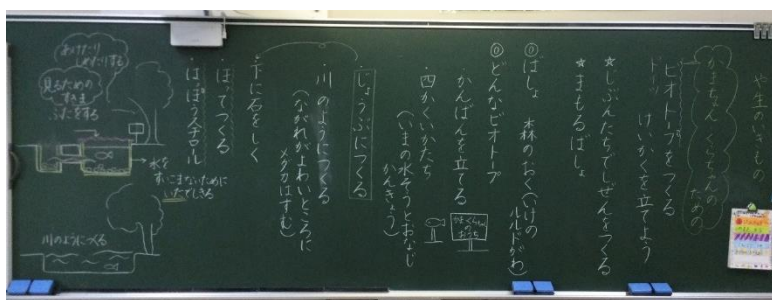 や生のいきもの
かまちゃん、くんちゃんの
ための
ビオトープをつくる
けいかくを立てよう
★じぶんたちでしぜんをつくる
★まもるばしょ
◎ばしょ 森のおく(いけの
ルルドがわ)
◎どんなビオトープ
・かんばんを立てる
・四かくいかたち
(いまの水そうとおなじ
かんきょう)
・じょうぶにつくる
・川のようにつくる
(ながれがよわいところに
メダカはすむ)
・下に石をしく
・ほってつくる
・はっぽうスチロール
あけたり
しめたりする
見るための
すきま
ふたをする
水を
すいこまないために
いたでしきる
川のようにつくる